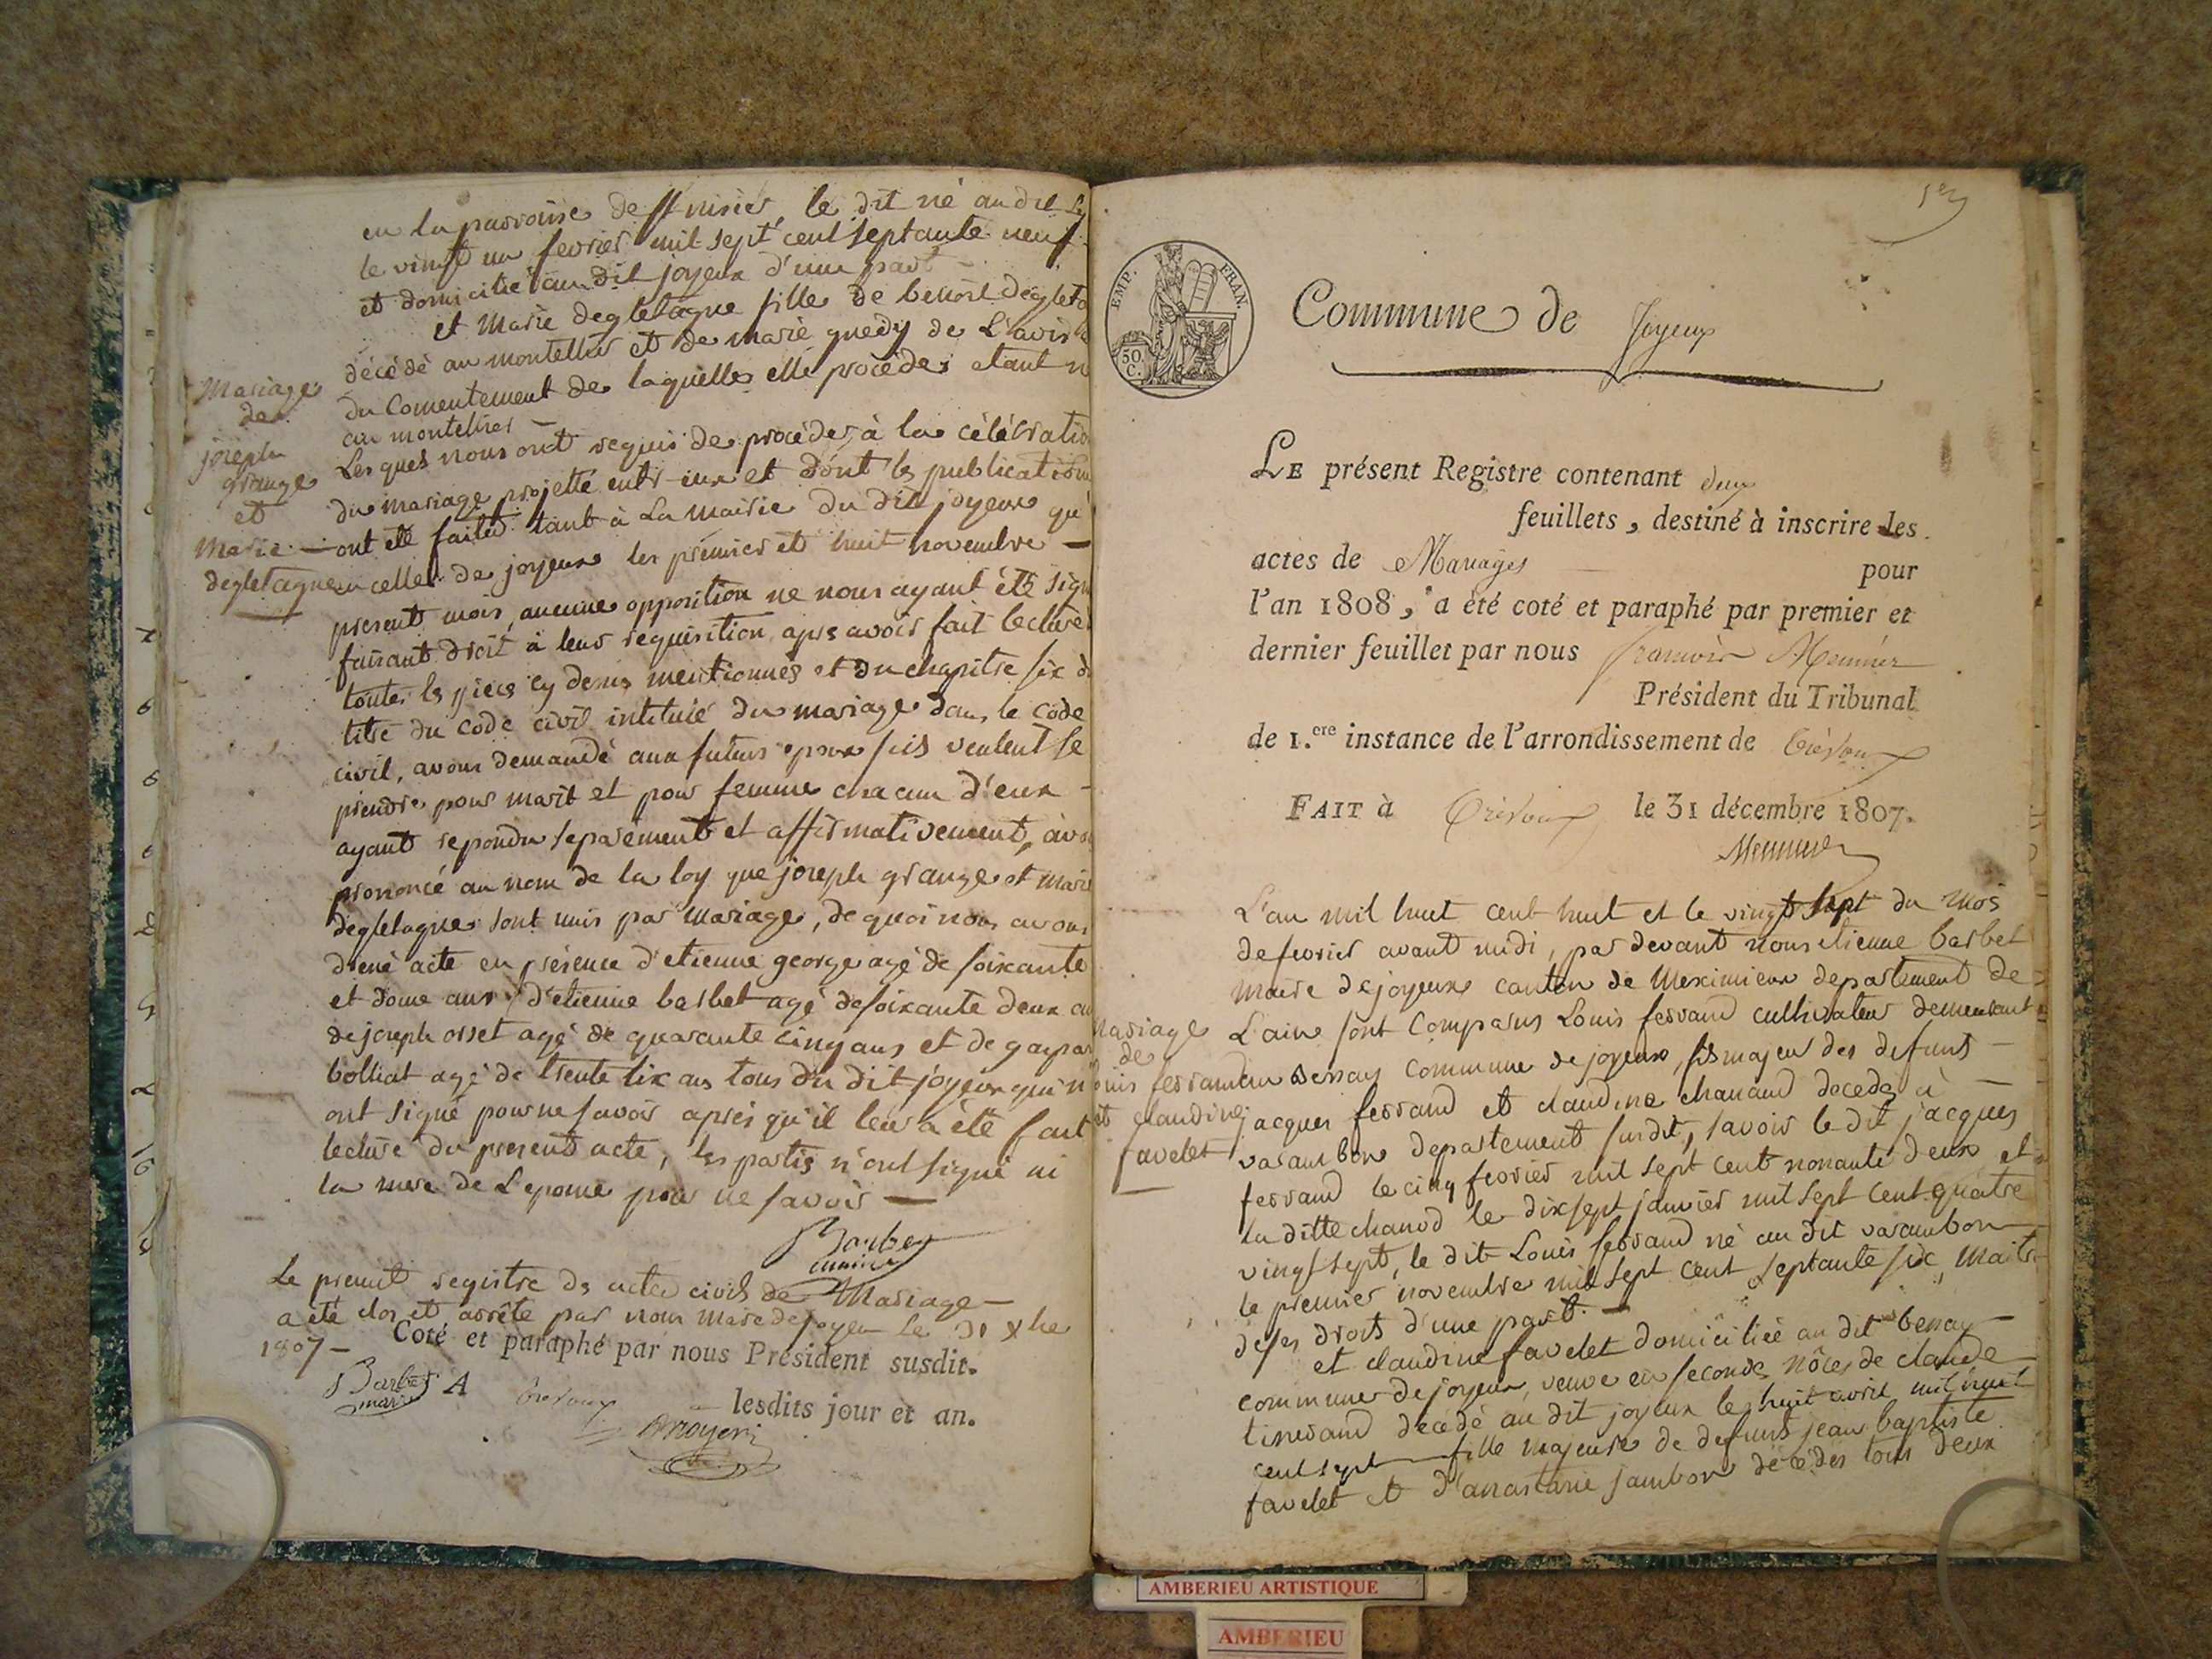 en la parroisse de st nisier, le dit né au dit Ly
le vingt un fevrier mil sept cent septante neuf
et domicilié au dit joyeux d'une part –
et Marie degletagne fille de benoit degleta
décédé au montellier et de marie guedy de L'avis
du Consentement de laquelle elle procède, etant n
au montellier –
Mariage
de
joseph
grange
et
Marie
degletagne
Les quels nous ont requis de procéder à la célébratio
du mariage projetté entr-eux et dont les publications
– ont été faites tant à La mairie du dit joyeux qu'
en celle de joyeux les premier et huit novembre –
present mois, aucune opposition ne nous ayant été sign
faisant droit à leur requisition, aprs avoir fait lecture
toutes ls pieces cy dessus mentionnés et du chapitre six d
titre du code civil intitulé du mariage dans le code
civil, avons demandé aux futurs epoux s'ils veulent se
prendre pour marit et pour femme chacun d'eux –
ayant repondu separément et affirmativement, avo
prononcé au nom de la loy que joseph grange et Marie
degletagne sont unis par mariage, de quoi nous avons
dressé acte en présence d'etienne george agé de soixante
et douze ans, d'etienne barbet agé de soixante deux an
de joseph orset agé de quarante cinq ans et de gaspar
bolliat agé de trente six ans tous du dit joyeux qui n'
ont signé pour ne savoir après qu'il leur a été fait
lecture du present acte, les partis n'ont signé ni
la mere de L'epouse pour ne savoir –
Barbet
maire
Le present registre ds actes civils de Mariage –
a été clos et arrêté par nous Maire de joyeux le 31 Xbre
1807 –
Coté et paraphé par nous Président susdit.
Barbet A
maire
Trévoux lesdits jour et an.
EMP. FRAN.
50.
C.
Commune de Joyeux
LE présent Registre contenant deux
feuillets, destiné à inscrire les
actes de Mariages pour
l'an 1808, a été coté et paraphé par premier et
dernier feuillet par nous françois Meunier
Président du Tribunal
de 1.ere instance de l'arrondissement de Trévoux
FAIT à Trévoux le 31 décembre 1807.
Meunier
L'an mil huit cent huit et le vingt sept du mois
de fevrier avant midi, par devant nous etienne barbet
maire de joyeux canton de Meximieux departement de
Mariage
de
Louis ferrand
et claudine
favelet
L'ain sont Comparus Louis ferrand cultivateur demeurant
au bessay commune de joyeux, fils majeur des defunts –
jacques ferrand et claudine chanaud decedes à –
varambon departement susdit, savoir le dit jacques
ferrand le cinq fevrier mil sept cent nonante deux et
la ditte chanod le dix sept janvier mil sept cent quatre
vingt sept, le dit Louis ferrand né au dit varambon
le premier novembre mil sept cent septante six, maitre
de ses droits d'une part. –
et claudine favelet domiciliée au dit bessay –
commune de joyeux, veuve en seconde nôces de claude
tinerand décédé au dit joyeux le huit avril mil huit
cent sept – fille majeure de defunts jean baptiste
favelet et d'anastasie jambon décédés tous deux
AMBERIEU ARTISTIQUE
AMBERIEU